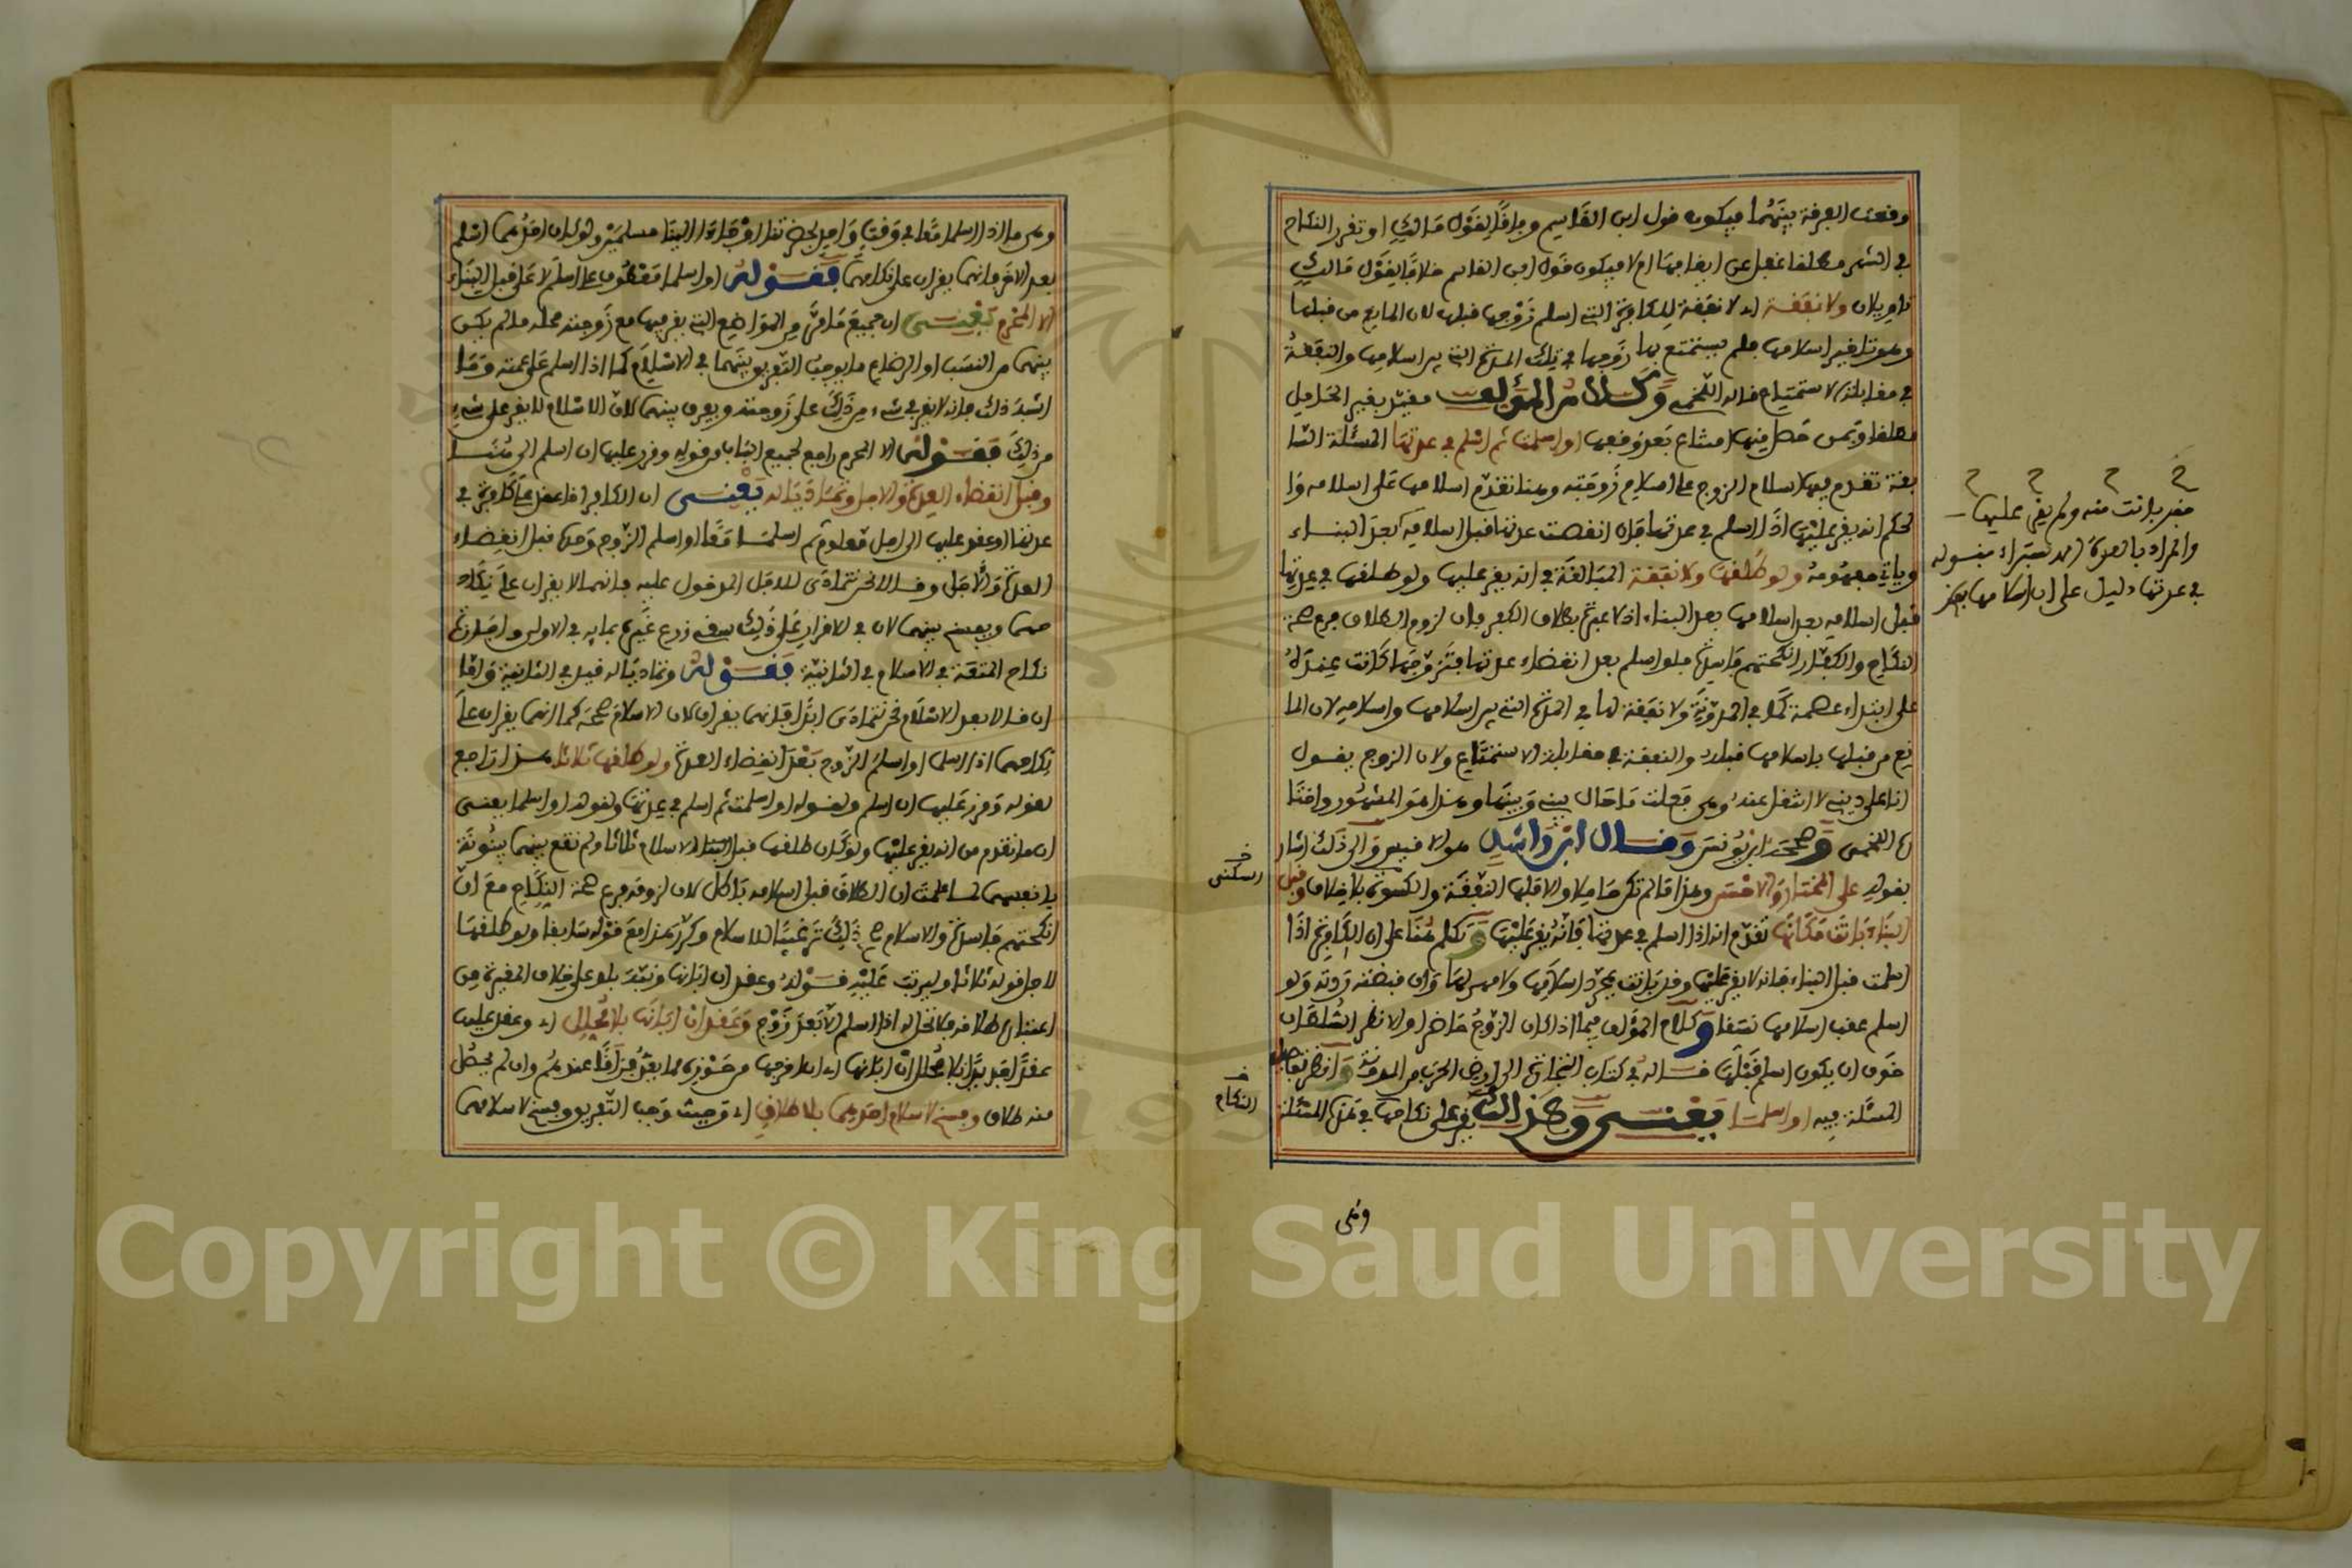 وقعت الفرقة بينهما فيكون قول ابن القاسم وفاقا لقول مالك او تقرر النكاح
في الشهر مطلقا غفل عن ايقافها ام لا فيكون قول ابن القاسم خلافا لقول مالك
تاويلان ولا نفقة اي لا نفقة للكافرة التي اسلم زوجها قبلها لان المانع من قبلها
وهو تاخير اسلامها فلم يستمتع بها زوجها في تلك المدة التي بين اسلامهما والنفقة
في مقابلة الاستمتاع قاله اللخمي وكلام المؤلف مقيد بغير الحامل
مطلقا وبمن حصل منها امتناع بعد وقفها او اسلمت ثم اسلم في عدتها المسئلة السا
بقة تقدم فيها اسلام الزوج على اسلام زوجته وهنا تقدم اسلامها على اسلامه وا
لحكم انه يقر عليها اذا اسلم في عدتها فان انقضت عدتها قبل اسلامه بعد البناء
وياتي مفهومه ولو طلقها ولا نفقة المبالغة في انه يقر عليها ولو طلقها في عدتها
قبل اسلامه بعد اسلامها بعد البناء اذ لا عبرة بطلاق الكفر فان لزوم الطلاق فرع صحة
النكاح والكفار انكحتهم فاسدة فلو اسلم بعد انقضاء عدتها فتزوجها كانت عنده
على ابتداء عصمة كما في المدونة ولا نفقة لها في المدة التي بين اسلامها واسلامه لان الما
نع من قبلها باسلامها قبله والنفقة في مقابلة الاستمتاع ولان الزوج يقول
انا على ديني لا انتقل عنه وهي فعلت ما حال بيني وبينها وهذا هو المشهور واختا
ره اللخمي وصححه ابن يونس وقال ابن راشد هو الاقيس والى ذلك اشار
بقوله على المختار والاحسن وهذا ما لم تكن حاملا والا فلها النفقة والكسوة بلا خلاف وقبل
البناء بانت مكانها تقدم انه اذا اسلم في عدتها فانه يقر عليها وتكلم هنا على ان الكافرة اذا
اسلمت قبل البناء فانه لا يقر عليها وقد بانت بمجرد اسلامها ولا مهر لها وان قبضته ردته ولو
اسلم عقب اسلامها نسقا وكلام المؤلف فيما اذا كان الزوج حاضرا والا نظر السلطان
خوف ان يكون اسلم قبلها قاله في كتاب التجارة الى ارض الحرب من المدونة وانظر تفاصيل
المسئلة فيه او اسلما يعني وكذلك يقر على نكاحها في هذه المسئلة
وهي
فقد بانت منه ولم يقر عليها
والمراد بالعدة الاستبراء فقوله
في عدتها دليل على ان اسلامها بعد
السكنى
النكاح
وهي ما اذا اسلما معا في وقت واحد بحضرتنا او جاءا الينا مسلمين ولو كان احدهما اسلم
بعد الاخر فانهما يقران على نكاحهما فقوله او اسلما معطوف على اسلم لا على قبل البناء
الا المحرم يعني ان جميع ما مر من المواضع التي يقر فيها مع زوجته محله ما لم يكن
بينهما من النسب او الرضاع ما يوجب التفريق بينهما في الاسلام كما اذا اسلم على عمته وما
اشبه ذلك فانه لا يقر في شيء من ذلك على زوجته ويفرق بينهما لان الاسلام لا يقر على شيء
من ذلك فقوله الا المحرم راجع لجميع الباب من قوله وقرر عليها ان اسلم الى هنا
وقبل انقضاء العدة والاجل وتماديا له يعني ان الكافر اذا عقد على كافرة في
عدتها او عقد عليها الى اجل معلوم ثم اسلما معا او اسلم الزوج وحده قبل انقضاء
العدة والاجل وقالا نحن نتمادى للاجل المدخول عليه فانهما لا يقران على نكا
حهما ويفسخ بينهما لان في الاقرار على ذلك سقي زرع غيره بمائه في الاولى واجازة
نكاح المتعة في الاسلام في الثانية فقوله وتماديا له قيد في الثانية واما
ان قالا بعد الاسلام نحن نتمادى ابدا فانهما يقران لان الاسلام صححه كما انهما يقران على
نكاحهما اذا اسلما او اسلم الزوج بعد انقضاء العدة ولو طلقها ثلاثا هذا راجع
لقوله وقرر عليها ان اسلم ولقوله او اسلمت ثم اسلم في عدتها ولقوله او اسلما يعني
ان ما تقدم من انه يقر عليها ولو كان طلقها قبل الاسلام ثلاثا ولم تقع بينهما بينونة
بانفسهما لما علمت ان الطلاق قبل اسلامه باطل لان لزومه فرع صحة النكاح مع ان
انكحتهم فاسدة والاسلام صحح ذلك ترغيبا للاسلام وكرر هذا مع قوله سابقا ولو طلقها
لاجل قوله ثلاثا وليرتب عليه قوله وعقد ان ابانها ونبه بلو على خلاف المغيرة من
اعتبار طلاقه فلا تحل له اذا اسلم الا بعد زوج وعقد ان ابانها بلا محلل اي وعقد عليها
عقدا جديدا بلا محلل ان ابانها اي اخرجها من حوزه مما يعد فراقا عندهم وان لم يحصل
منه طلاق وفسخ لاسلام احدهما بلا طلاق اي حيث وجب التفريق وفسخ لاسلامهما